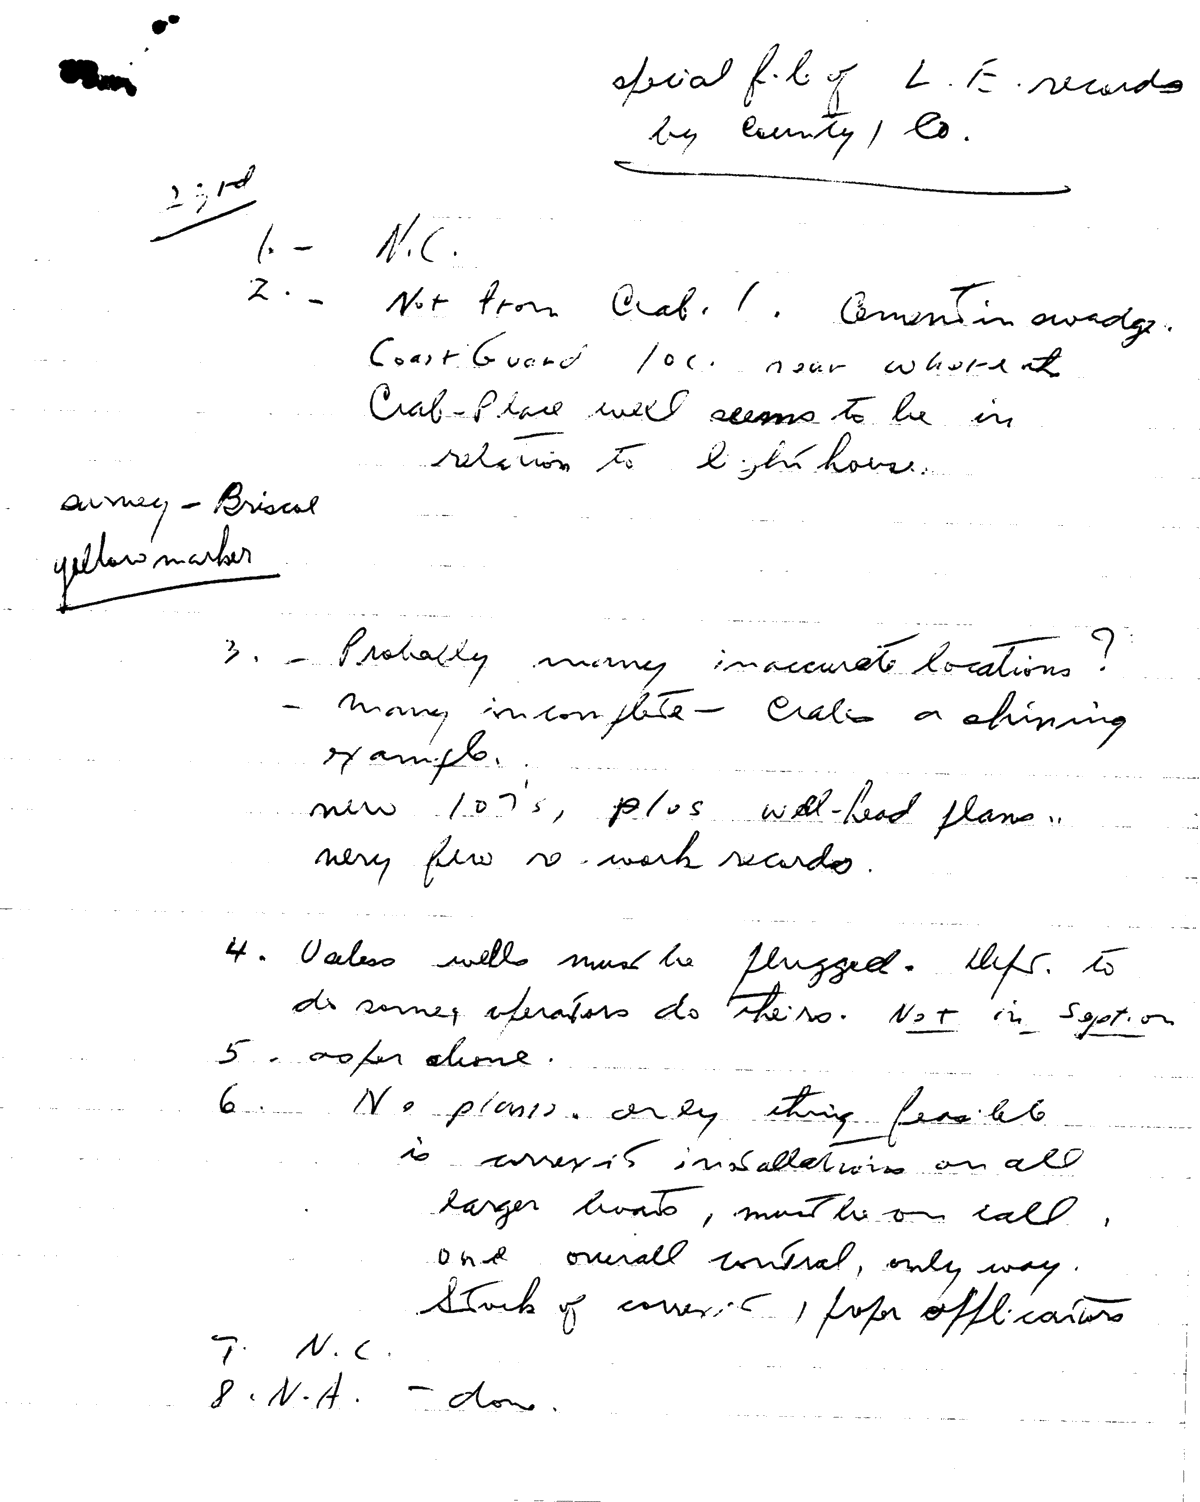 special file of L. E. records
by County, Co.
23rd
1. - N.C.
2. - Not from Crab. 1. Cement in swadge.
Coast Guard loc. near where
Crab-Place well seems to be in
relation to lighthouse.
survey - Briscoe
yellow marker
3. - Probably many inaccurate locations?
- many incomplete - Crab is a shining
example.
new 107's, plus well-head plans..
very few re-work records.
4. Useless wells must be plugged. Dept. to
do some, operators do theirs. Not in
5. as per above.
6. No plans. only thing feasible
is correxit installations on all
larger boats, must be on call,
one overall control, only way.
Stock of correxit, proper applicators
7. N.C.
8. N.A. - done.